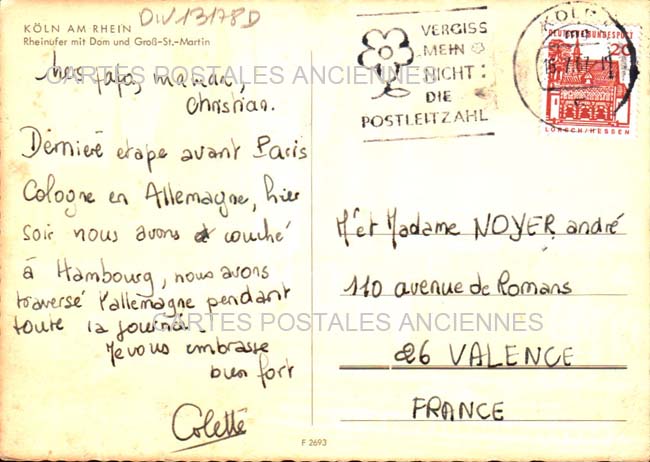 DIV13178D
KÖLN AM RHEIN
Rheinufer mit Dom und Groß-St.-Martin
VERGISS
MEIN
NICHT:
DIE
POSTLEITZAHL
KÖLN
DEUTSCHE BUNDESPOST
20
LORSCH/HESSEN
CARTES POSTALES ANCIENNES
papa, maman,
Christian.
Dernière etape avant Paris
Cologne en Allemagne, hier
soir nous avons couché
à Hambourg, nous avons
traversé l'allemagne pendant
toute la journée.
Je vous embrasse
bien fort
Colette
Mr et Madame NOYER andré
110 avenue de Romans
26 VALENCE
FRANCE
CARTES POSTALES ANCIENNES
F 2693